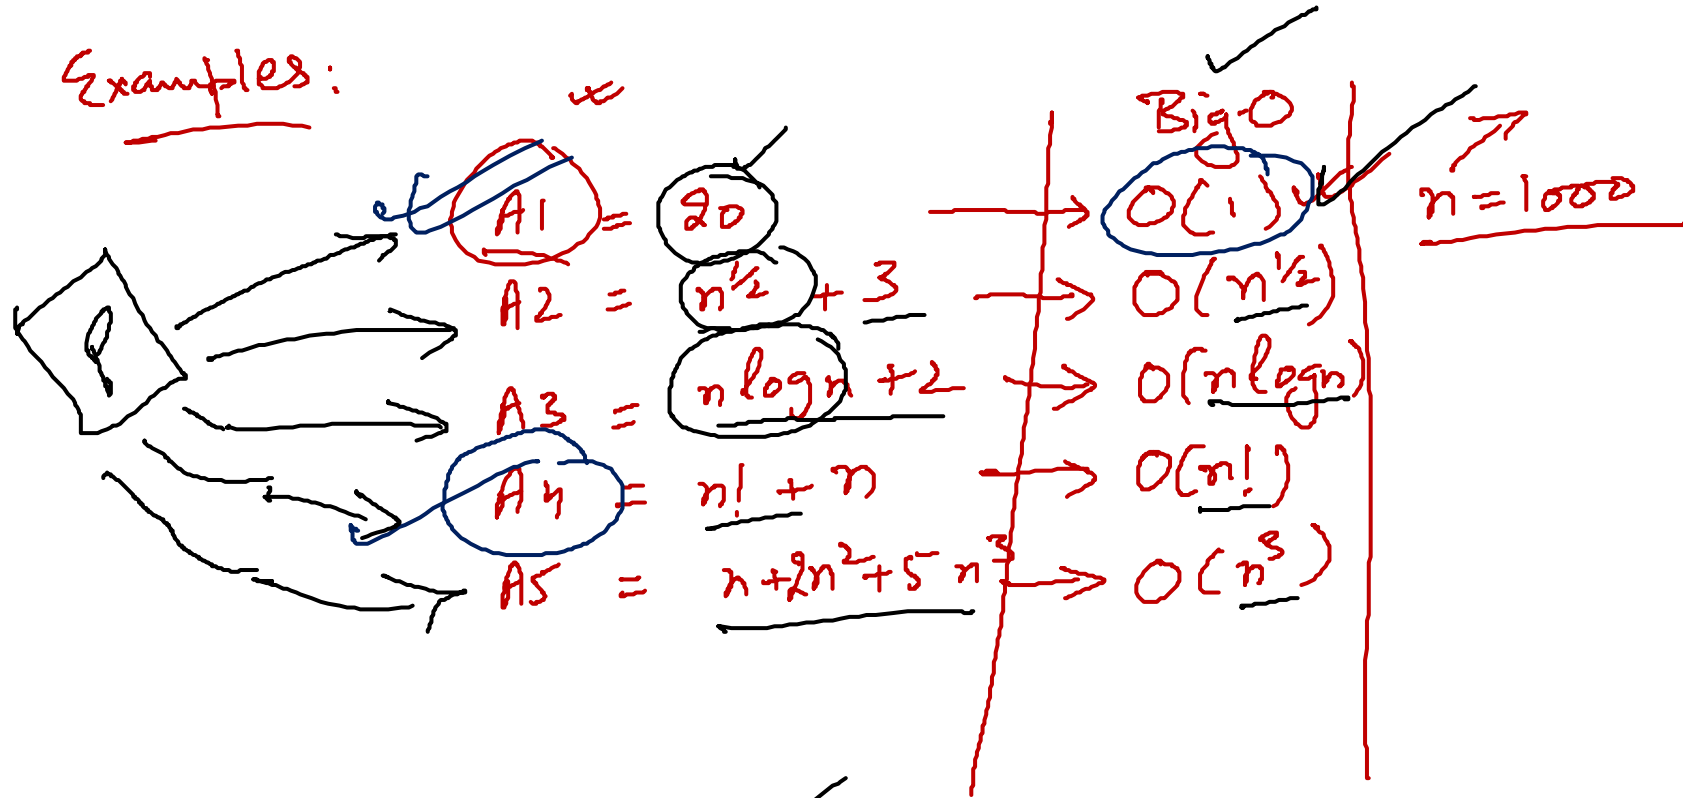 Examples:
Big-O
A1 = 20 → O(1) n = 1000
P
A2 = n^1/2 + 3 → O(n^1/2)
A3 = n log n + 2 → O(n log n)
A4 = n! + n → O(n!)
A5 = n + 2n² + 5n³ → O(n³)